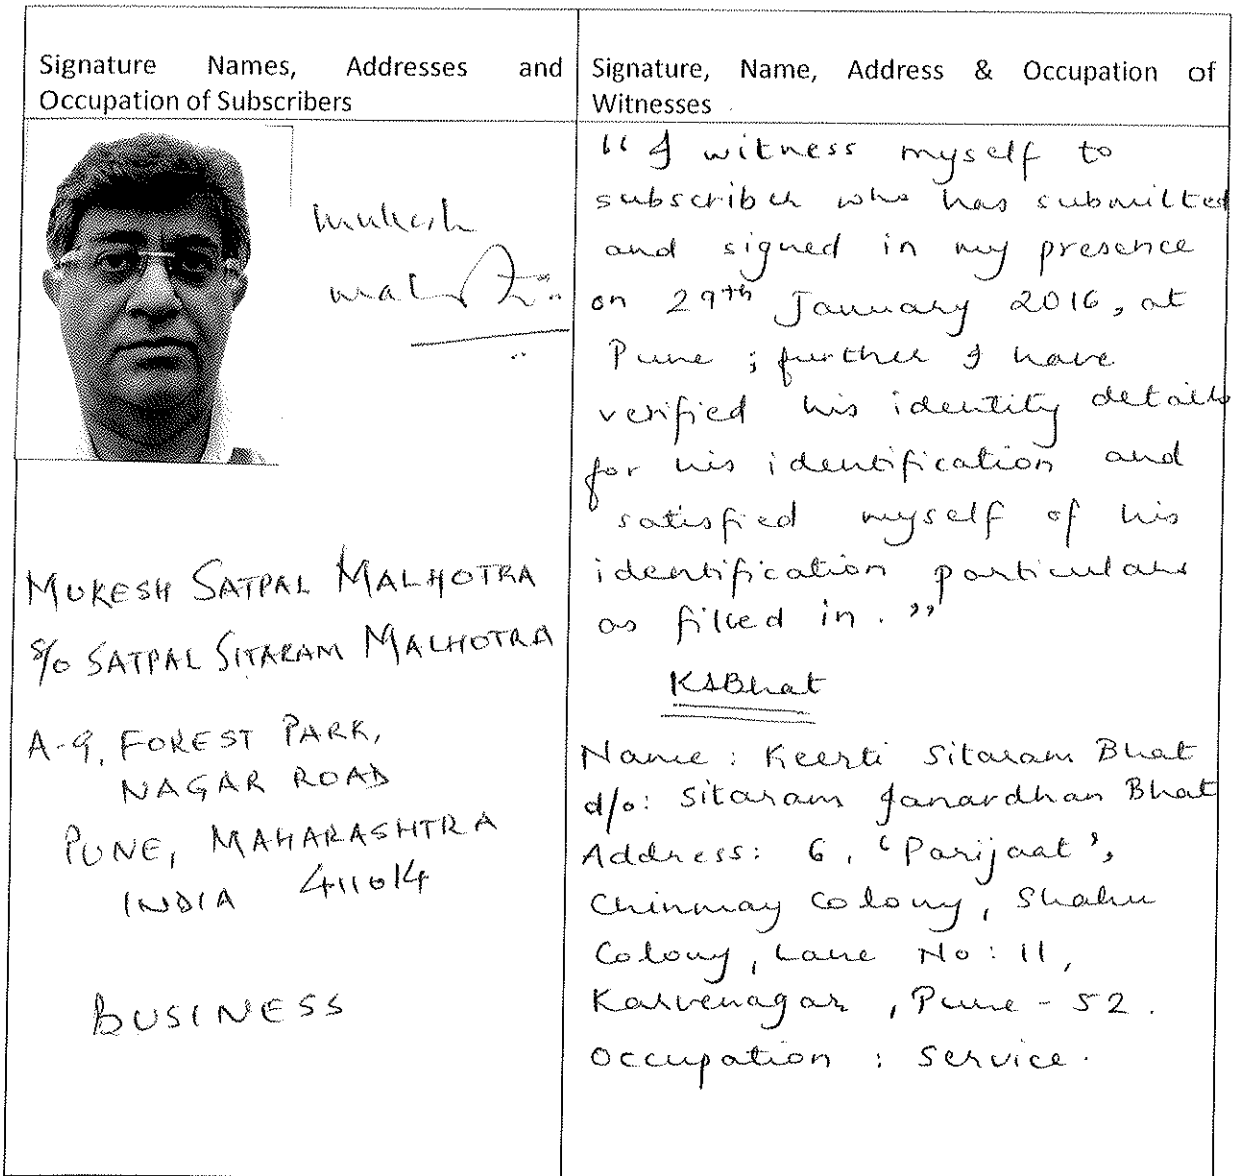 Signature Names, Addresses and
Occupation of Subscribers
mukesh
MUKESH SATPAL MALHOTRA
S/o SATPAL SITARAM MALHOTRA
A-9, FOREST PARK,
NAGAR ROAD
PUNE, MAHARASHTRA
INDIA 411014
BUSINESS
Signature, Name, Address & Occupation of
Witnesses
"I witness myself to
subscriber who has submitted
and signed in my presence
on 29th January 2016, at
Pune ; further I have
verified his identity details
for his identification and
satisfied myself of his
identification particulars
as filled in."
KSBhat
Name : Keerti Sitaram Bhat
d/o: Sitaram Janardhan Bhat
Address: 6, 'Parijaat',
Chinmay Colony, Shahu
Colony, Lane No: 11,
Karvenagar, Pune - 52.
Occupation : Service.